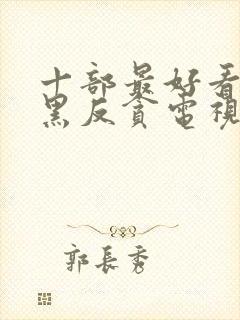 十部最好看
黑反貪電視
郭長秀